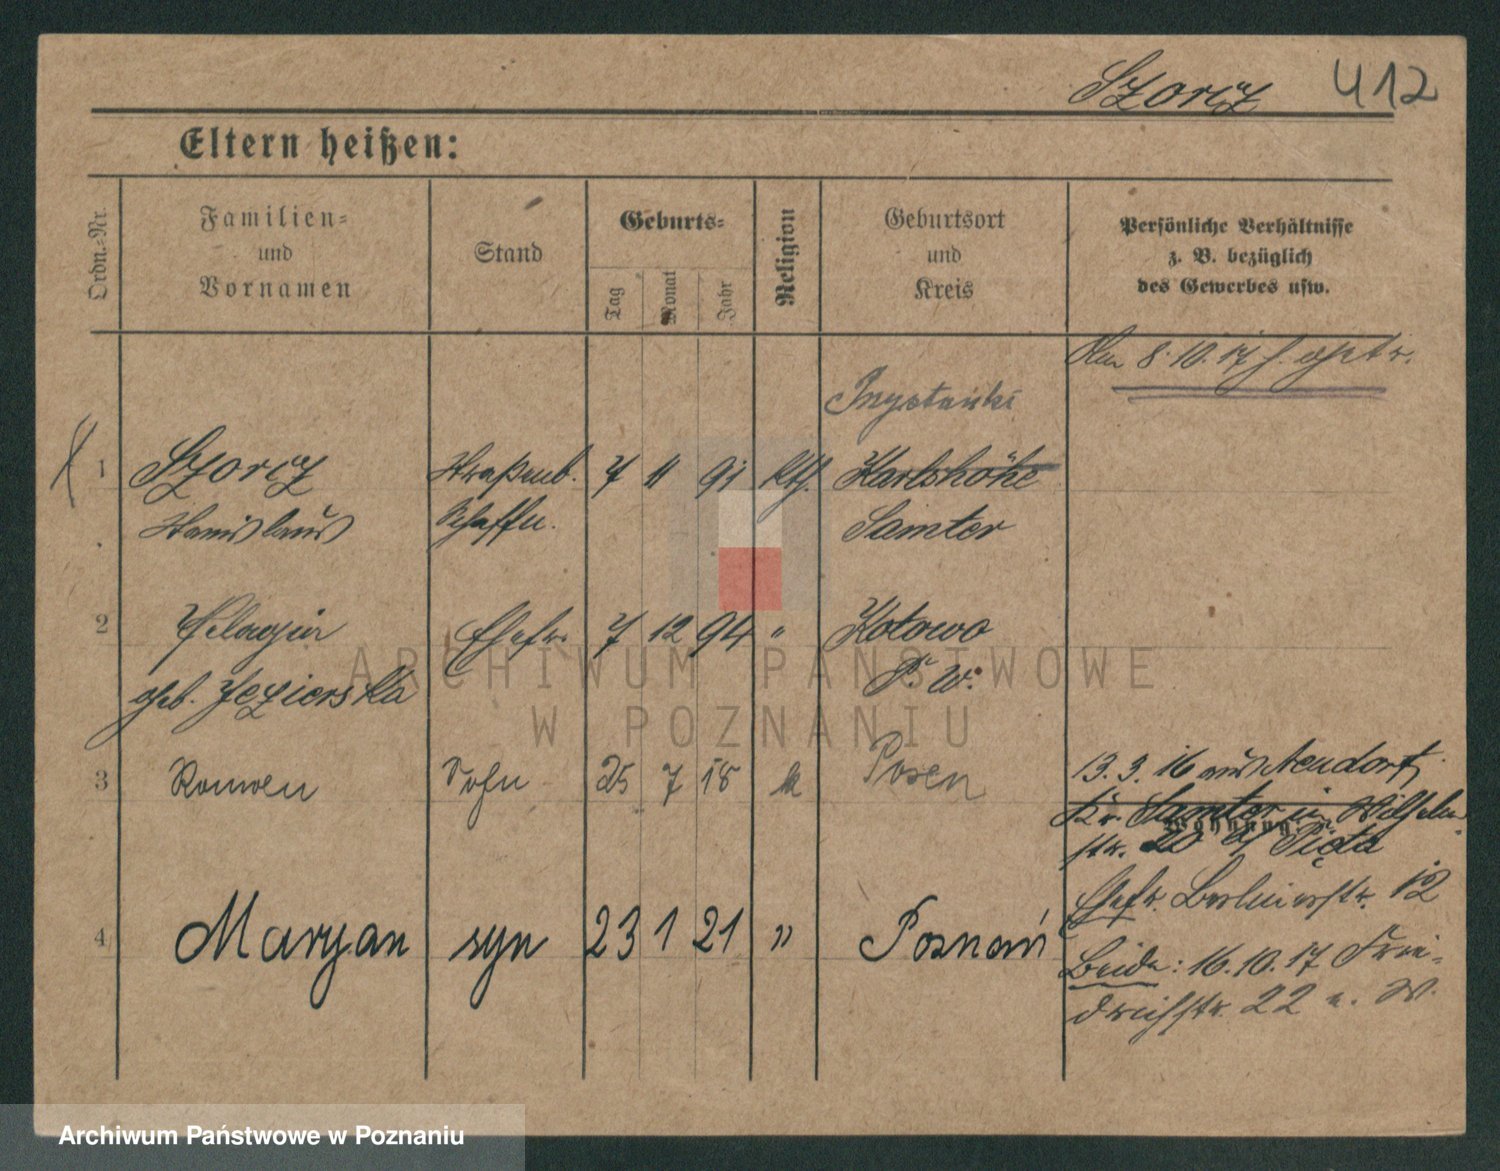 Szorcz 412
Eltern heißen:
Ordn.-Nr.
Familien-
und
Vornamen
Stand
Geburts-
Tag
Monat
Jahr
Religion
Geburtsort
und
Kreis
Persönliche Verhältnisse
z. B. bezüglich
des Gewerbes usw.
8.10.17
1 Szorcz Straßenb. 7 11 91 kth. Karlshöhe
Stanislaus Schaffn. Samter
2 Pelagia Ehefr. 7 12 94 " Kotowo
geb. Jezierska P. W.
3 Roman Sohn 25 7 18 k Posen
13.3.16 aus Neudorf,
Kr. Samter in Wilhelm
Wohnung
str. 20 b/ Pięta
4 Maryan syn 23 1 21 " Poznań
Ehefr. Berlinerstr. 12
Beide: 16.10.17 Frie-
drichstr. 22 b. W.
ARCHIWUM PAŃSTWOWE
W POZNANIU
Archiwum Państwowe w Poznaniu